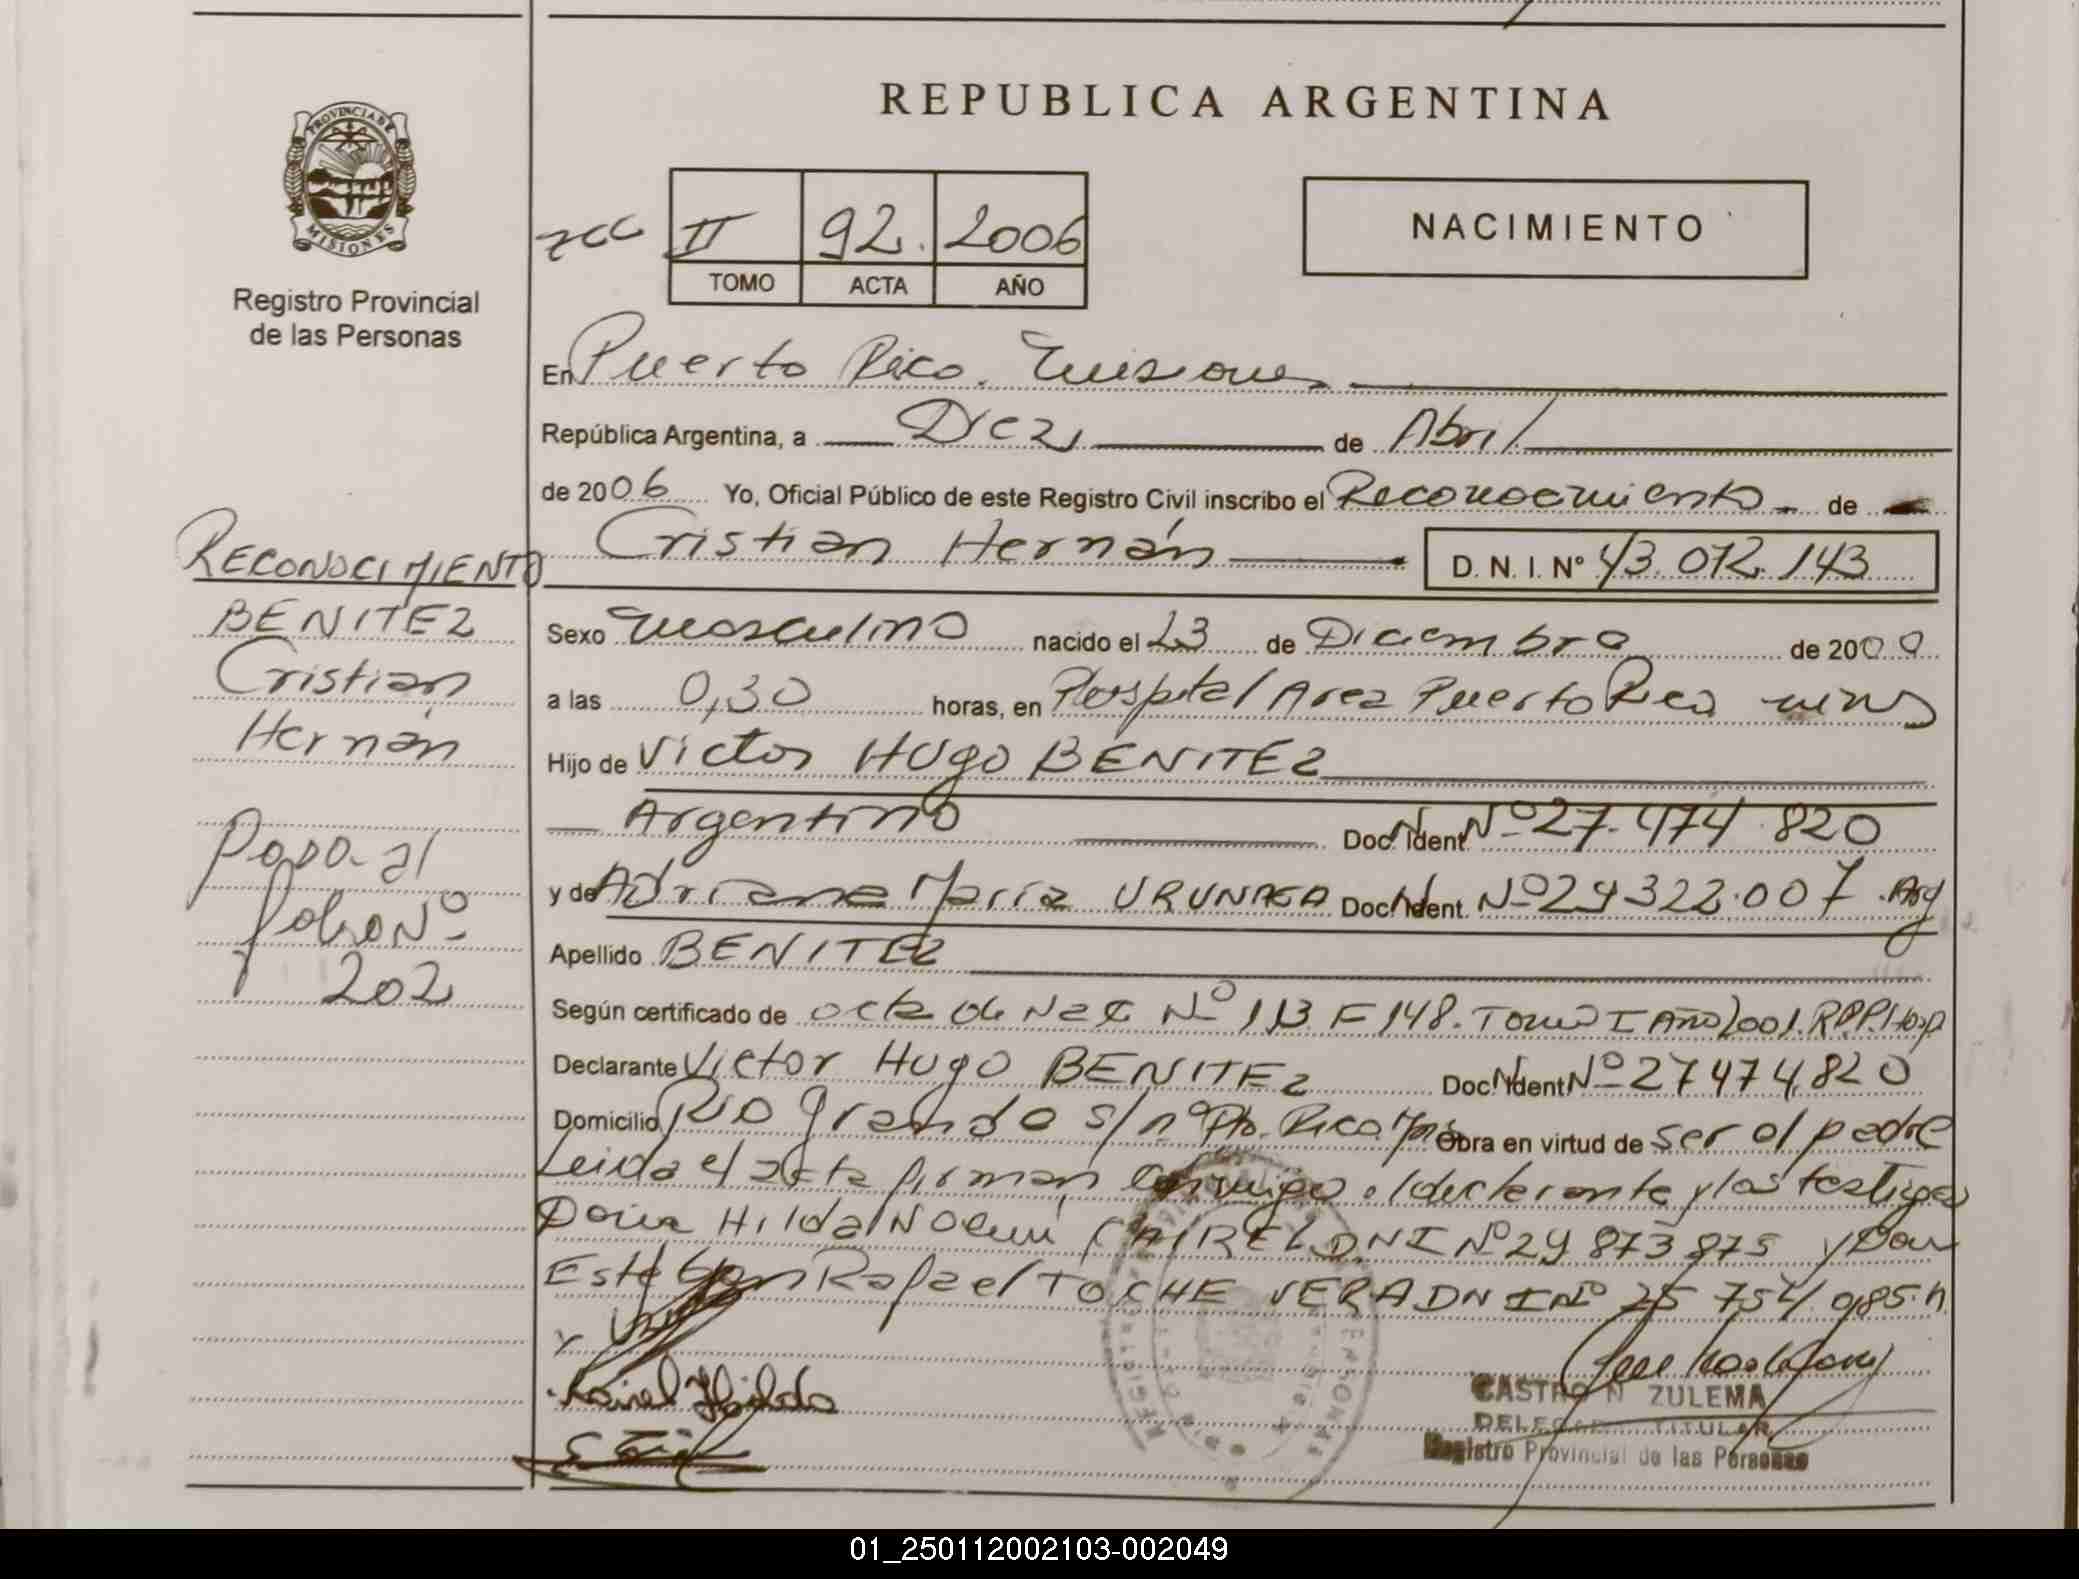 REPUBLICA ARGENTINA
PROVINCIA DE
MISIONES
Registro Provincial
de las Personas
II 92. 2006
TOMO ACTA AÑO
NACIMIENTO
En Puerto Rico. Misiones
República Argentina, a Diez de Abril
de 2006 Yo, Oficial Público de este Registro Civil inscribo el Reconocimiento de
Cristian Hernán D. N. I. N° 43.072.143
Sexo Masculino nacido el 23 de Diciembre de 2000
a las 0,30 horas, en Hospital Area Puerto Rico
Hijo de Victor Hugo BENITEZ
Argentino Doc. Ident. Nº 27.474.820
y de Adriana María Doc. Ident. Nº 29322.007. Arg
Apellido BENITEZ
Según certificado de acta de Nac Nº 113 F 148. Tomo I Año 2001. R.P.P. Hosp
Declarante Victor Hugo BENITEZ Doc. Ident Nº 27474.820
Domicilio Rio Grande s/nº Pto. Rico. Mnes Obra en virtud de ser el padre
Leida el acta firman conmigo el declarante y los testigos
Doña Hilda Noemi DNI Nº 29 873 875 y Don
Esteban Rafael TOCHE VERA DNI Nº 25 754 085.
RECONOCIMIENTO
BENITEZ
Cristian
Hernán
Pasa al
folio Nº
202
Hilda
CASTRO N ZULEMA
DELEGADA TITULAR
Registro Provincial de las Personas
01_250112002103-002049